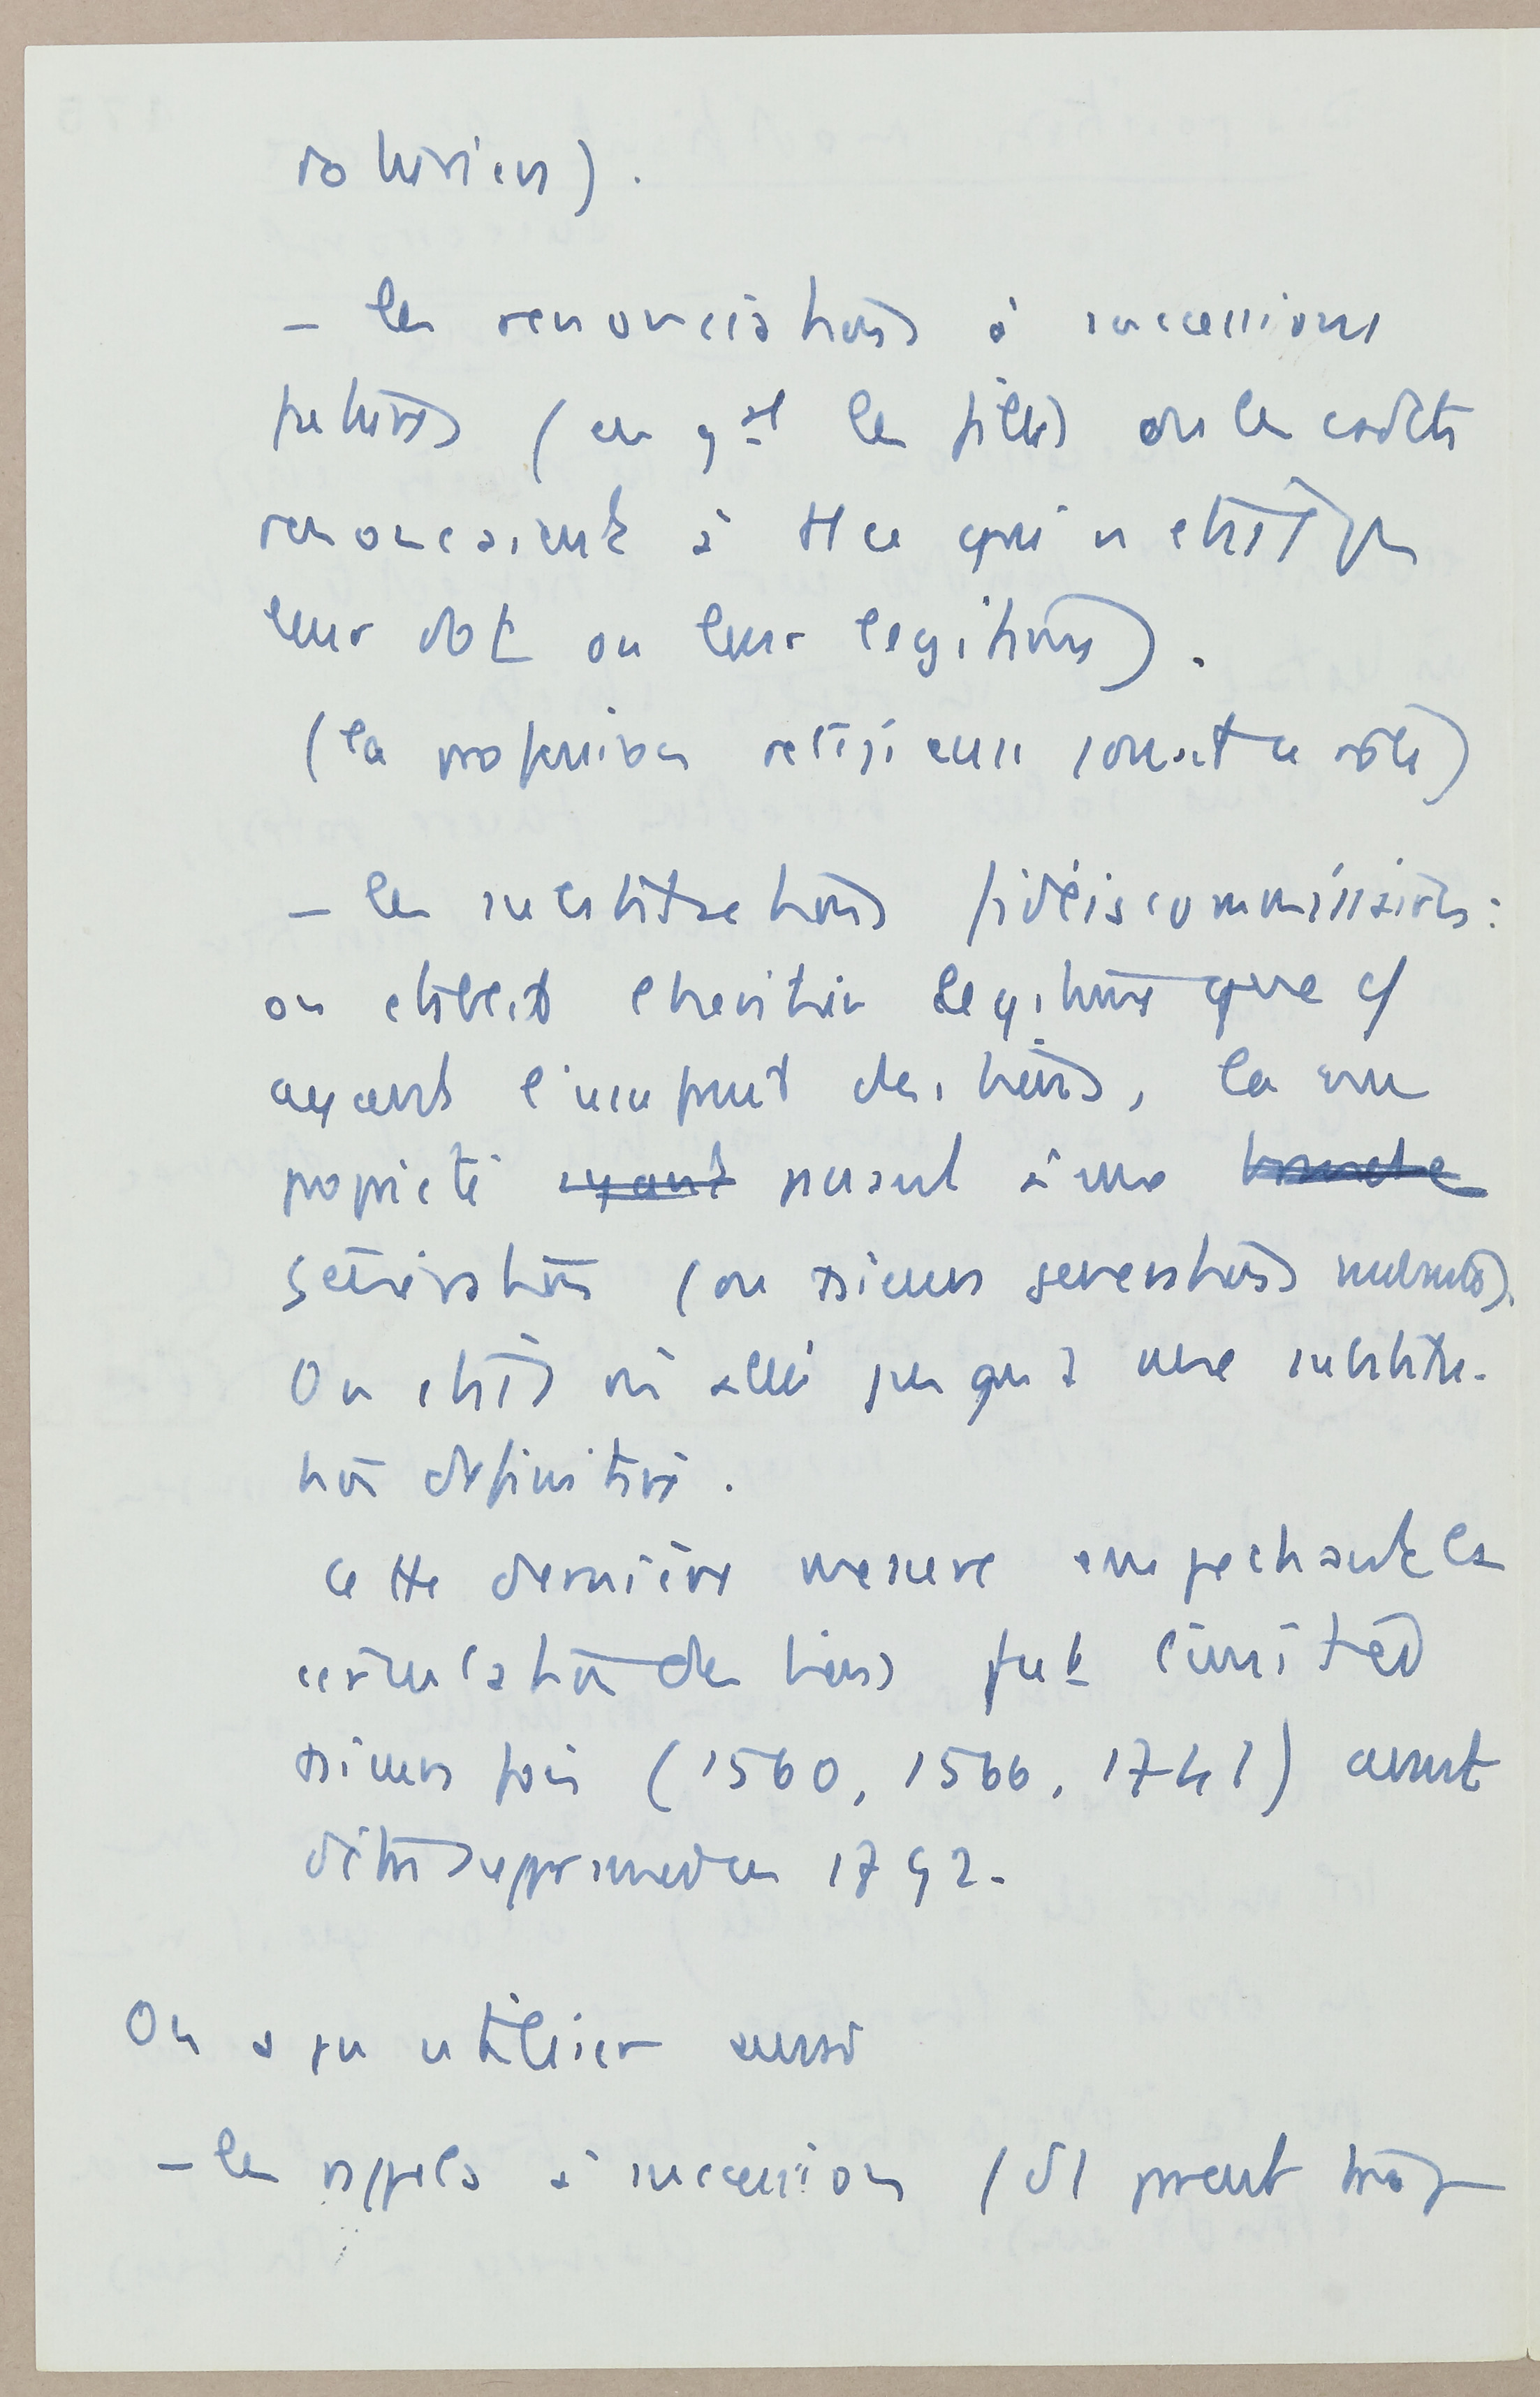 roturiers).
- les renonciations à successions
futures (en gal les filles ou les cadets
renonçaient à tt ce qui n'était pas
leur dot ou leur légitime).
(la profession religieuse jouait ce rôle)
- les substitutions fidéicommissaires :
on établit l'héritier légitime que c/
ayant l'usufruit des biens, la nue
propriété ayant passant à une branche
génération (ou plusieurs générations suivantes).
On était même allé jusqu'à une substitu-
tion définitive.
Cette dernière mesure empêchant la
circulation des biens fut limitée
plusieurs fois (1560, 1566, 1747) avant
d'être supprimée en 1792.
On a pu utiliser aussi
- les rappels à succession (dt